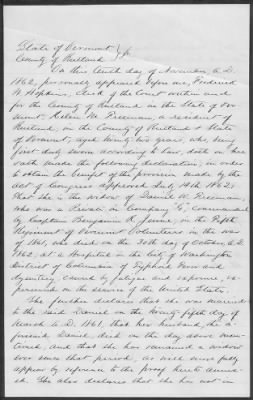 State of Vermont
County of Rutland } ss.
On this tenth day of November A.D.
1862, personally appeared before me, Frederick
W. Hopkins, Clerk of the Court within and
for the County of Rutland in the State of Ver
mont, Helen M. Freeman, a resident of
Rutland, in the County of Rutland & State
of Vermont, aged twenty years, who, being
first duly sworn according to law, doth on her
oath make the following declaration, in order
to obtain the benefit of the provision made by the
Act of Congress approved July 14th 1862:
That she is the widow of Daniel Freeman,
who was a Private in Company "G" commanded
by Captain Benjamin R. Jenne, in the Fifth
Regiment of Vermont Volunteers in the war
of 1861, who died on the 30th day of October A.D.
1862, at a Hospital in the City of Washington
District of Columbia of Typhoid Fever and
dysentery, caused by fatigue and exposure ex-
perienced in the service of the United States.
She further declares that she was married
to the said Daniel on the twenty fifth day of
March A.D. 1861, that her husband, the a-
foresaid Daniel, died on the day above men-
tioned, and that she has remained a widow
ever since that period, as will more fully
appear by reference to the proof hereto annex-
ed. She also declares that she has not in